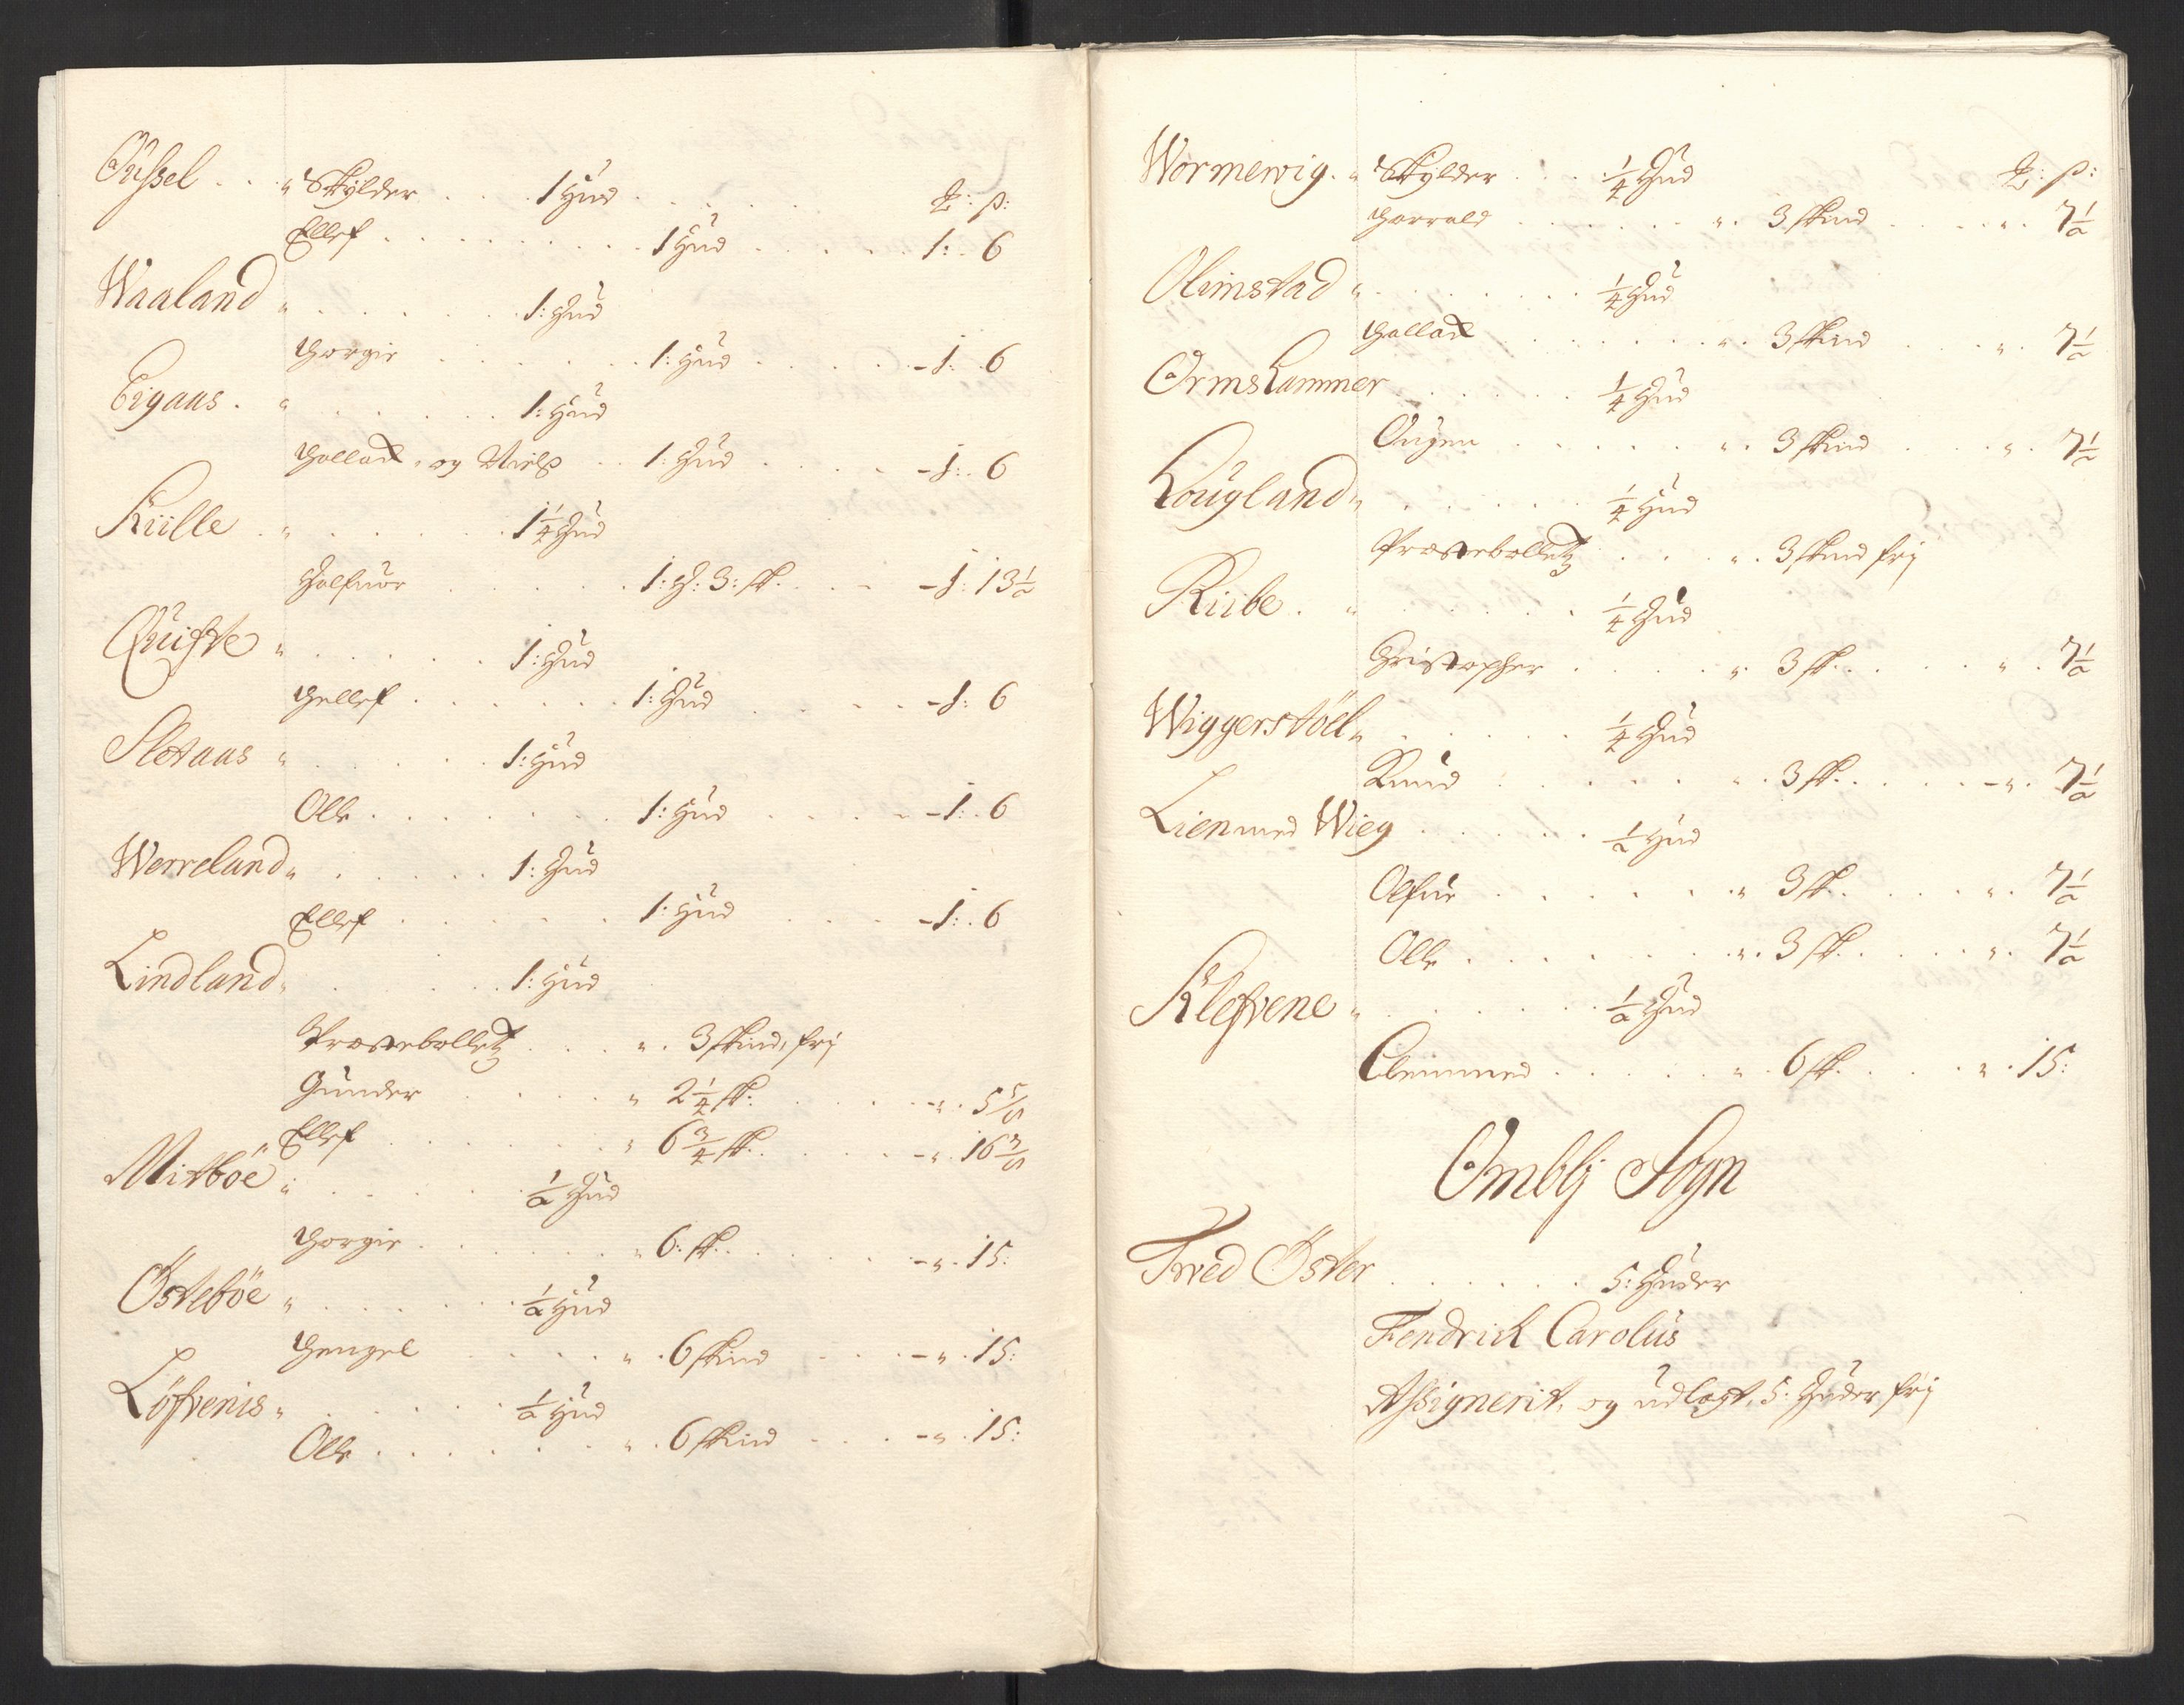 Øÿssel . . " Skÿlder . . . 1 Hud . . . . . . ₰: ß:
Ellef . . . . . . . . . 1 Hud . . . . . 1: 6
Waaland " . . . . . . 1: Hud
Torgie . . . . . . 1: Hud . . . . . 1: 6
Eigaas . " . . . . . . 1: Hud
Tollack og Niels . . 1: Hud . . . . . 1: 6
Kiille . " . . . . . . 1 1/4 Hud
Halfuor . . . . . 1: H: 3: sk. . . . 1: 13 1/2
Quiste " . . . . . 1: Hud
Tellef . . . . . . 1: Hud . . . . 1: 6
Slotaas " . . . . . 1: Hud
Olle . . . . . . . 1: Hud . . . . 1: 6
Werreland " . . . . . 1: Hud
Ellef . . . . . . 1: Hud . . . . 1: 6
Lindland " . . . . . 1: Hud
Præstebollet . . . " . 3 skind, frj
Gunder . . . . . " 2 1/4 sk: . . . . " . 5 5/8
Ellef . . . . . . . " 6 3/4 sk. . . . . " . 16 7/8
Mitböe " . . . . . . 1/2 Hud
Torgie . . . . . . . " 6: sk. . . . . . " . 15:
Östeböe " . . . . . . 1/2 Hud
Tengel . . . . " . 6 skind . . . " . 15:
Löfvenis " . . . . . . 1/2 Hud
Olle . . . . . . . " . 6 skind . . . " . 15:
Wormewig . " Skÿlder . . . . 1/4 Hud ₰: ß:
Torrald . . . . . . " . 3 skind . . . . " . 7 1/2
Olimstad " . . . . . . . 1/4 Hud
Tollack . . . . . . . " . 3 skind . . . " . 7 1/2
Ormshammer . . . . . . 1/4 Hud
Augen . . . . . . " . 3 skind . . . . " . 7 1/2
Hougland " . . . . . . 1/4 Hud
Præstebollet . . . " . 3 skind frj
Riibe . " . . . . . . 1/4 Hud
Christopher . . . . . " . 3 sk. . . . . " . 7 1/2
Wiggerstöel " . . . . . 1/4 Hud
Knud . . . . . . " . 3 sk. . . . . " . 7 1/2
Lien med Wieg . . . . . . 1/2 Hud
Olfue . . . . . . . " 3 sk. . . . . " . 7 1/2
Olle . . . . . . . " . 3 sk. . . . . " . 7 1/2
Klefvene " . . . . . . . 1/2 Hud
Clemmed . . . . . " . 6 sk. . . . " . 15:
Omblj Sogn
Tved Öster . . . . . . 5: Huder
Fendrick Carolus
Assignerit, og udlagt, 5. Huder frj